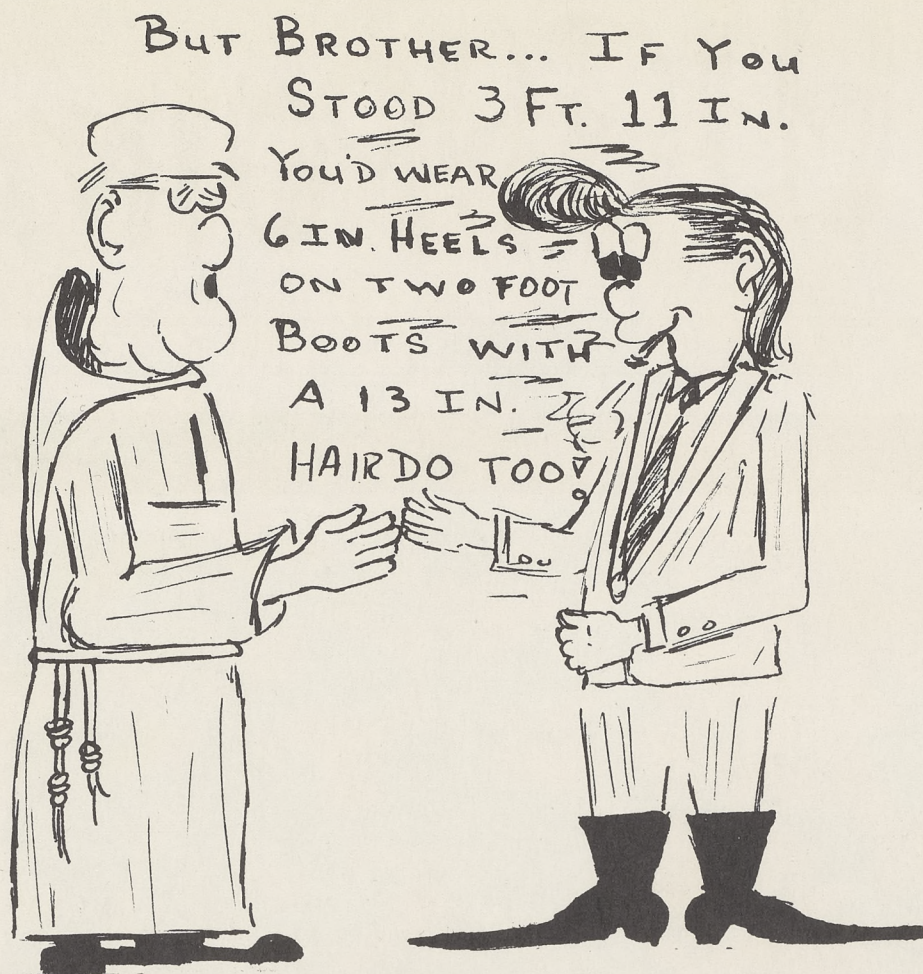 BUT BROTHER... IF YOU
STOOD 3 FT. 11 IN.
YOU'D WEAR
6 IN. HEELS
ON TWO FOOT
BOOTS WITH
A 13 IN.
HAIRDO TOO!